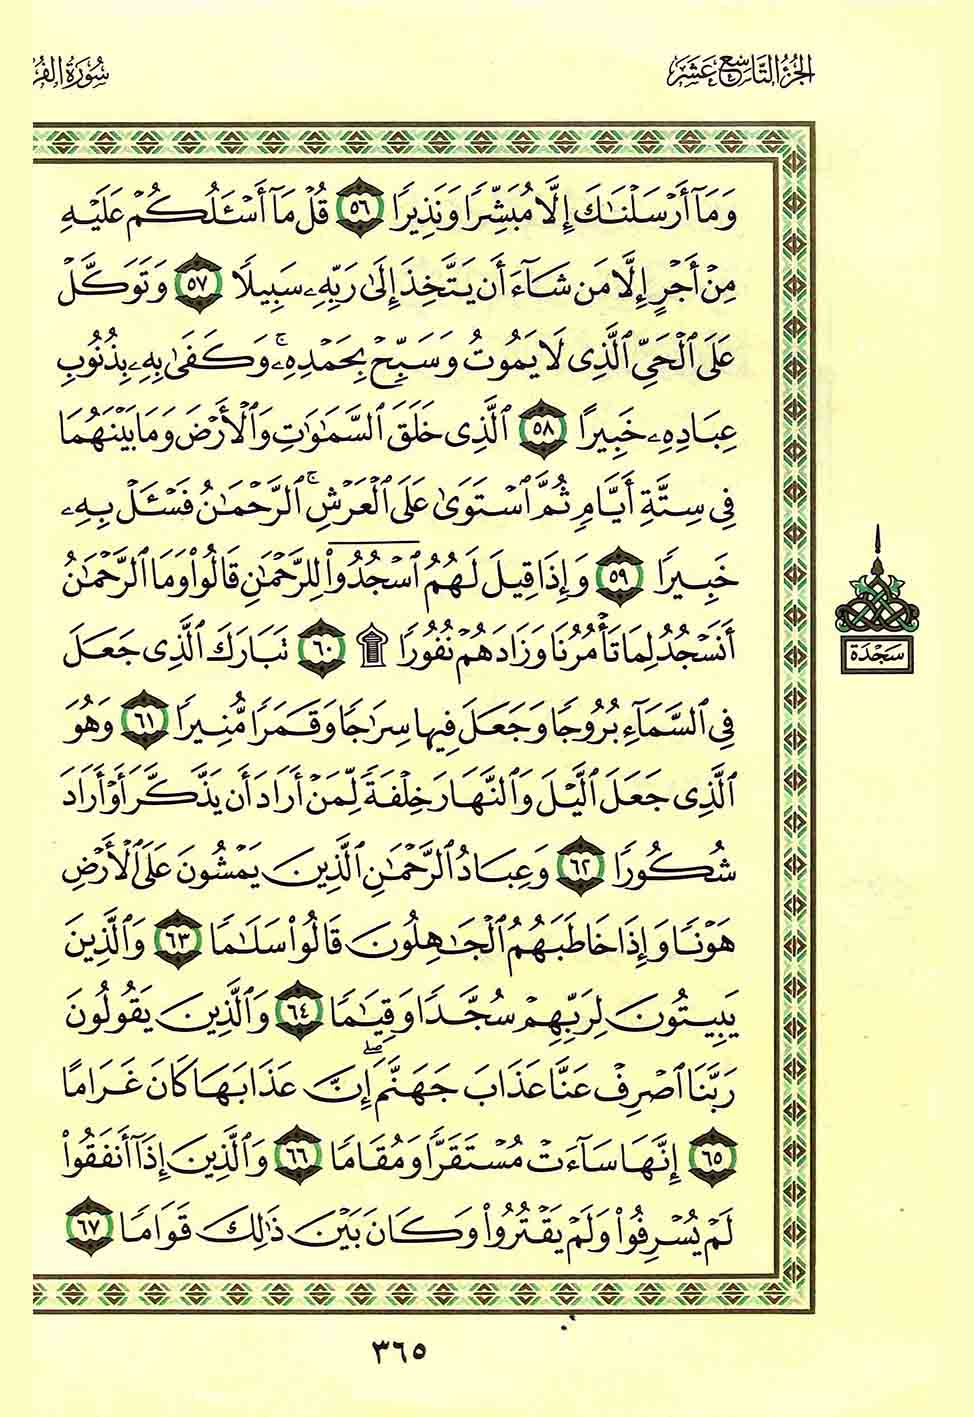 الجزء التاسع عشر
سورة الفر
وَمَآ أَرْسَلْنَٰكَ إِلَّا مُبَشِّرًا وَنَذِيرًا ٥٦ قُلْ مَآ أَسْـَٔلُكُمْ عَلَيْهِ
مِنْ أَجْرٍ إِلَّا مَن شَآءَ أَن يَتَّخِذَ إِلَىٰ رَبِّهِۦ سَبِيلًا ٥٧ وَتَوَكَّلْ
عَلَى ٱلْحَىِّ ٱلَّذِى لَا يَمُوتُ وَسَبِّحْ بِحَمْدِهِۦ ۚ وَكَفَىٰ بِهِۦ بِذُنُوبِ
عِبَادِهِۦ خَبِيرًا ٥٨ ٱلَّذِى خَلَقَ ٱلسَّمَٰوَٰتِ وَٱلْأَرْضَ وَمَا بَيْنَهُمَا
فِى سِتَّةِ أَيَّامٍ ثُمَّ ٱسْتَوَىٰ عَلَى ٱلْعَرْشِ ۚ ٱلرَّحْمَٰنُ فَسْـَٔلْ بِهِۦ
خَبِيرًا ٥٩ وَإِذَا قِيلَ لَهُمُ ٱسْجُدُوا۟ لِلرَّحْمَٰنِ قَالُوا۟ وَمَا ٱلرَّحْمَٰنُ
أَنَسْجُدُ لِمَا تَأْمُرُنَا وَزَادَهُمْ نُفُورًا ۩ ٦٠ تَبَارَكَ ٱلَّذِى جَعَلَ
فِى ٱلسَّمَآءِ بُرُوجًا وَجَعَلَ فِيهَا سِرَٰجًا وَقَمَرًا مُّنِيرًا ٦١ وَهُوَ
ٱلَّذِى جَعَلَ ٱلَّيْلَ وَٱلنَّهَارَ خِلْفَةً لِّمَنْ أَرَادَ أَن يَذَّكَّرَ أَوْ أَرَادَ
شُكُورًا ٦٢ وَعِبَادُ ٱلرَّحْمَٰنِ ٱلَّذِينَ يَمْشُونَ عَلَى ٱلْأَرْضِ
هَوْنًا وَإِذَا خَاطَبَهُمُ ٱلْجَٰهِلُونَ قَالُوا۟ سَلَٰمًا ٦٣ وَٱلَّذِينَ
يَبِيتُونَ لِرَبِّهِمْ سُجَّدًا وَقِيَٰمًا ٦٤ وَٱلَّذِينَ يَقُولُونَ
رَبَّنَا ٱصْرِفْ عَنَّا عَذَابَ جَهَنَّمَ ۖ إِنَّ عَذَابَهَا كَانَ غَرَامًا
٦٥ إِنَّهَا سَآءَتْ مُسْتَقَرًّا وَمُقَامًا ٦٦ وَٱلَّذِينَ إِذَآ أَنفَقُوا۟
لَمْ يُسْرِفُوا۟ وَلَمْ يَقْتُرُوا۟ وَكَانَ بَيْنَ ذَٰلِكَ قَوَامًا ٦٧
سَجْدَة
٣٦٥